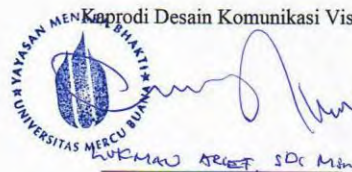 Kaprodi Desain Komunikasi Vis
YAYASAN MENARA BHAKTI
UNIVERSITAS MERCU BUANA
LUKMAN ARIEF, SDs